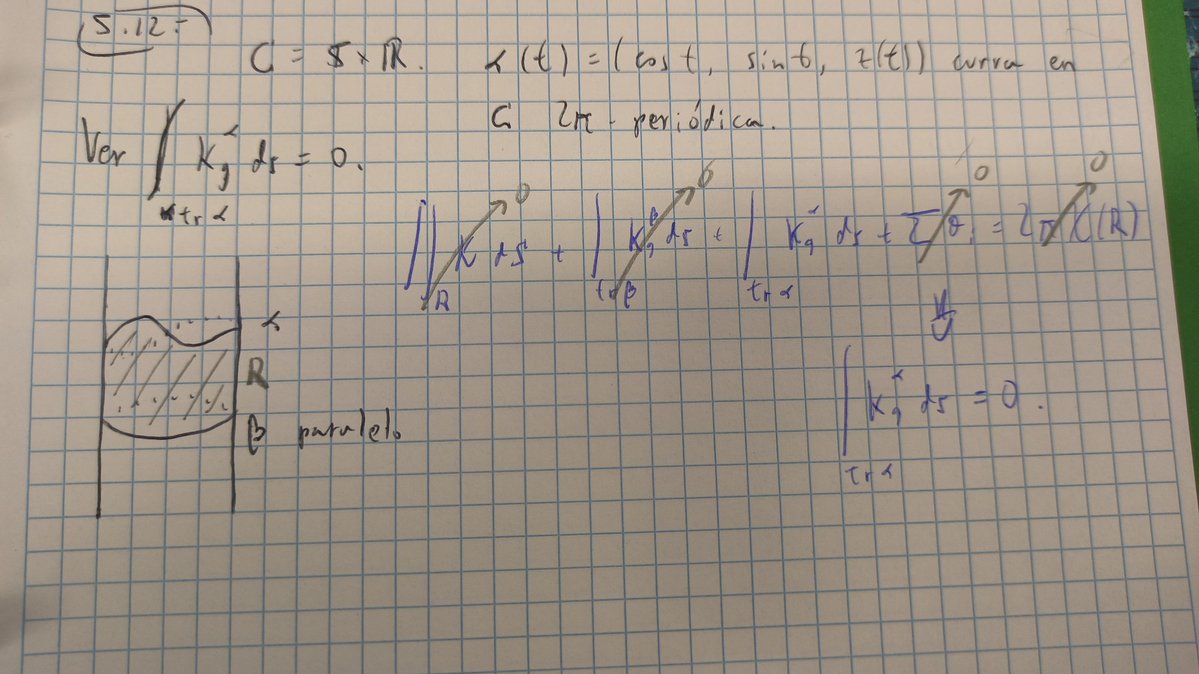 5.12.-
C = S × ℝ. α(t) = (cos t, sin t, z(t)) curva en
C 2π-periódica.
Ver ∫_{tr α} K_g^α ds = 0.
∬_R K dS + ∫_{tr β} K_g^β ds + ∫_{tr α} K_g^α ds + Σ θ_i = 2π χ(R)
0 0 0 0
⇓
∫_{tr α} K_g^α ds = 0.
α
R
β paralelo